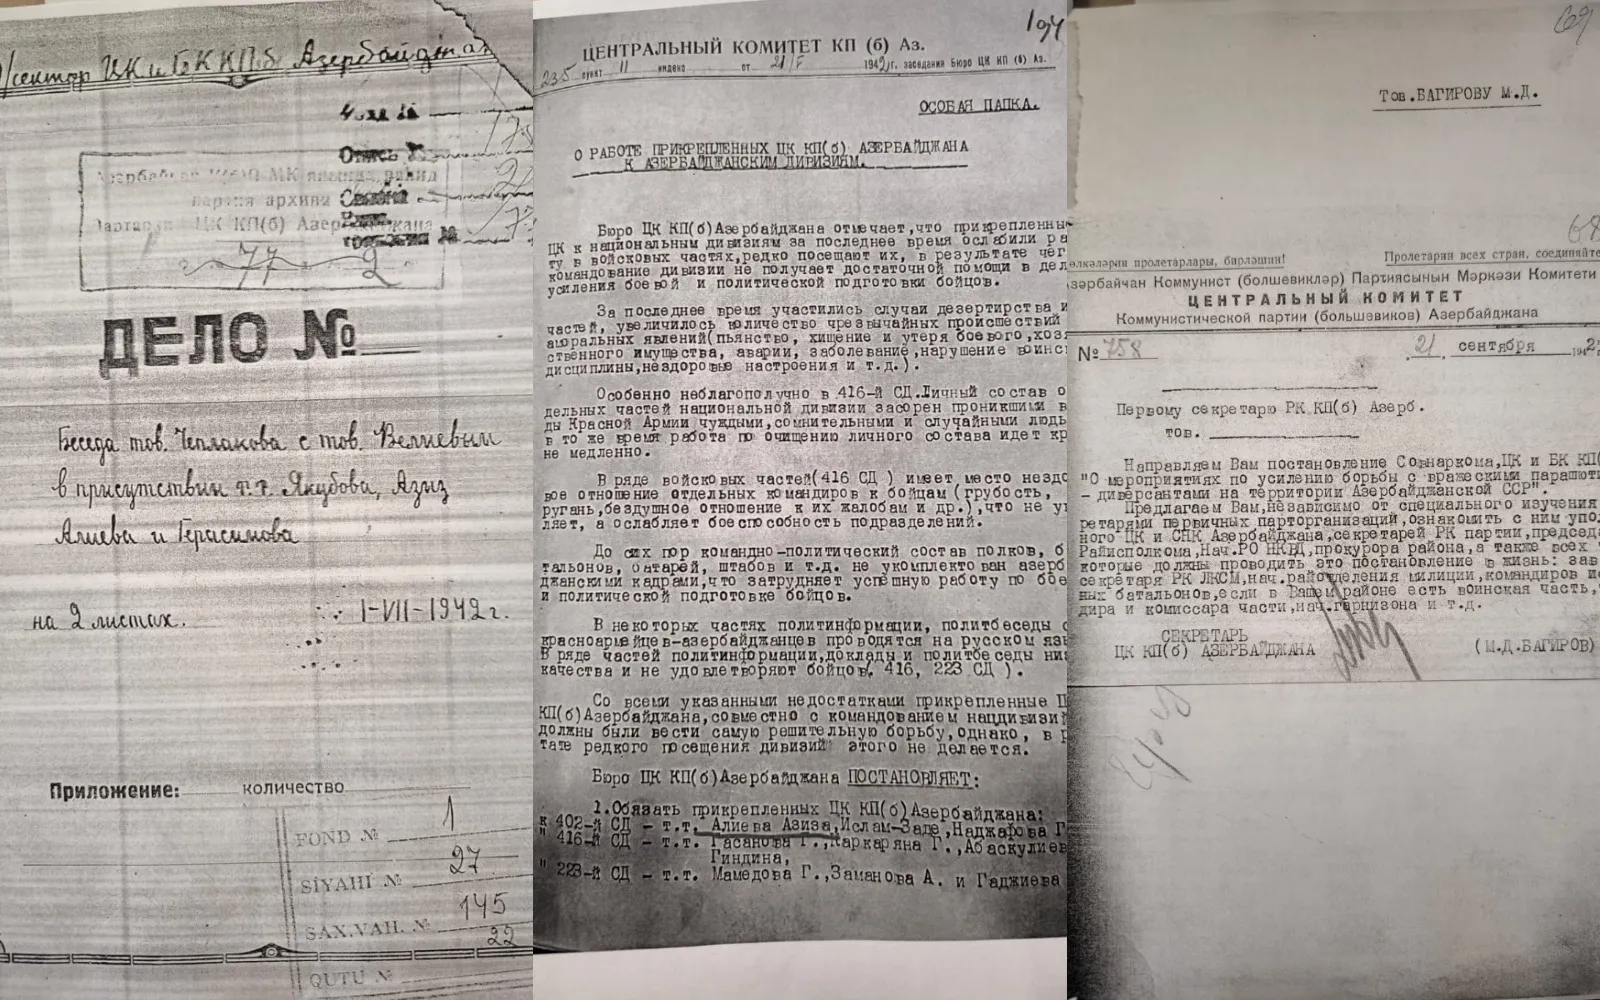 /сектор ЦК и БК КПб Азербайджана
Опись №
Связка
77 2
ДЕЛО №
Беседа тов. Чеплакова с тов. Велиевым
в присутствии т.т. Якубова, Азиз
Алиева и Герасимова
на 2 листах. 1-VII-1942г.
Приложение: количество
FOND № 1
SİYAHI № 27
SAX.VAH. № 145
22
QUTU №
194
ЦЕНТРАЛЬНЫЙ КОМИТЕТ КП (б) Аз.
235 пункт 11 индекс от 21/V 1942г. заседания Бюро ЦК КП (б) Аз.
ОСОБАЯ ПАПКА.
О РАБОТЕ ПРИКРЕПЛЕННЫХ ЦК КП(б) АЗЕРБАЙДЖАНА
К АЗЕРБАЙДЖАНСКИМ ДИВИЗИЯМ.
Бюро ЦК КП(б)Азербайджана отмечает,что прикрепленны
ЦК к национальным дивизиям за последнее время ослабили ра
ту в войсковых частях,редко посещают их, в результате чег
командование дивизии не получает достаточной помощи в дел
усиления боевой и политической подготовки бойцов.
За последнее время участились случаи дезертирства и
частей, увеличилось количество чрезвычайных происшествий
аморальных явлений(пьянство, хищение и утеря боевого,хозя
ственного имущества, аварии, заболевание,нарушение воинс
дисциплины,нездоровые настроения и т.д.).
Особенно неблагополучно в 416-й СД.Личный состав о
дельных частей национальной дивизии засорен проникшими в
ды Красной Армии чуждыми,сомнительными и случайными людь
в то же время работа по очищению личного состава идет кр
не медленно.
В ряде войсковых частей(416 СД ) имеет место нездо
вое отношение отдельных командиров к бойцам (грубость,
ругань,бездушное отношение к их жалобам и др.),что не ук
ляет, а ослабляет боеспособность подразделений.
До сих пор командно-политический состав полков, б
тальонов, батарей, штабов и т.д. не укомплектован азерб
джанскими кадрами,что затрудняет успешную работу по бое
и политической подготовке бойцов.
В некоторых частях политинформации, политбеседы с
красноармейцев-азербайджанцев проводятся на русском язы
В ряде частей политинформации,доклады и политбеседы ни
качества и не удовлетворяют бойцов( 416, 223 СД ).
Со всеми указанными недостатками прикрепленные Ц
КП(б)Азербайджана,совместно с командованием нацдивизий
должны были вести самую решительную борьбу,однако, в р
тате редкого посещения дивизий этого не делается.
Бюро ЦК КП(б)Азербайджана ПОСТАНОВЛЯЕТ:
1.Обязать прикрепленных ЦК КП(б)Азербайджана:
к 402-й СД - т.т. Алиева Азиза,Ислам-Заде,Наджафова Г
" 416-й СД - т.т. Гасанова Г.,Каркаряна Г.,Абаскулиев
Гиндина,
" 223-й СД - т.т. Мамедова Г.,Заманова А. и Гаджиева
69
Тов.БАГИРОВУ М.Д.
68
өлкәләрин пролетарлары, бирләшин! Пролетарии всех стран, соединяйте
Азәрбайчан Коммунист (болшевикләр) Партиясынын Мәркәзи Комитети
ЦЕНТРАЛЬНЫЙ КОМИТЕТ
Коммунистической партии (большевиков) Азербайджана
№ 758 21 сентября 1942
Первому секретарю РК КП(б) Азерб.
тов.
Направляем Вам постановление Совнаркома,ЦК и БК КП(
"О мероприятиях по усилению борьбы с вражескими парашюти
- диверсантами на территории Азербайджанской ССР".
Предлагаем Вам,независимо от специального изучения
ретарями первичных парторганизаций,ознакомить с ним упол
ного ЦК и СНК Азербайджана,секретарей РК партии,председа
Райисполкома,Нач.РО НКВД,прокурора района,а также всех
которые должны проводить это постановление в жизнь: зав
секретаря РК ЛКСМ,нач.райотделения милиции,командиров ис
ных батальонов,если в Вашем районе есть воинская часть,
дира и комиссара части,нач.гарнизона и т.д.
СЕКРЕТАРЬ
ЦК КП(б) АЗЕРБАЙДЖАНА (М.Д.БАГИРОВ)